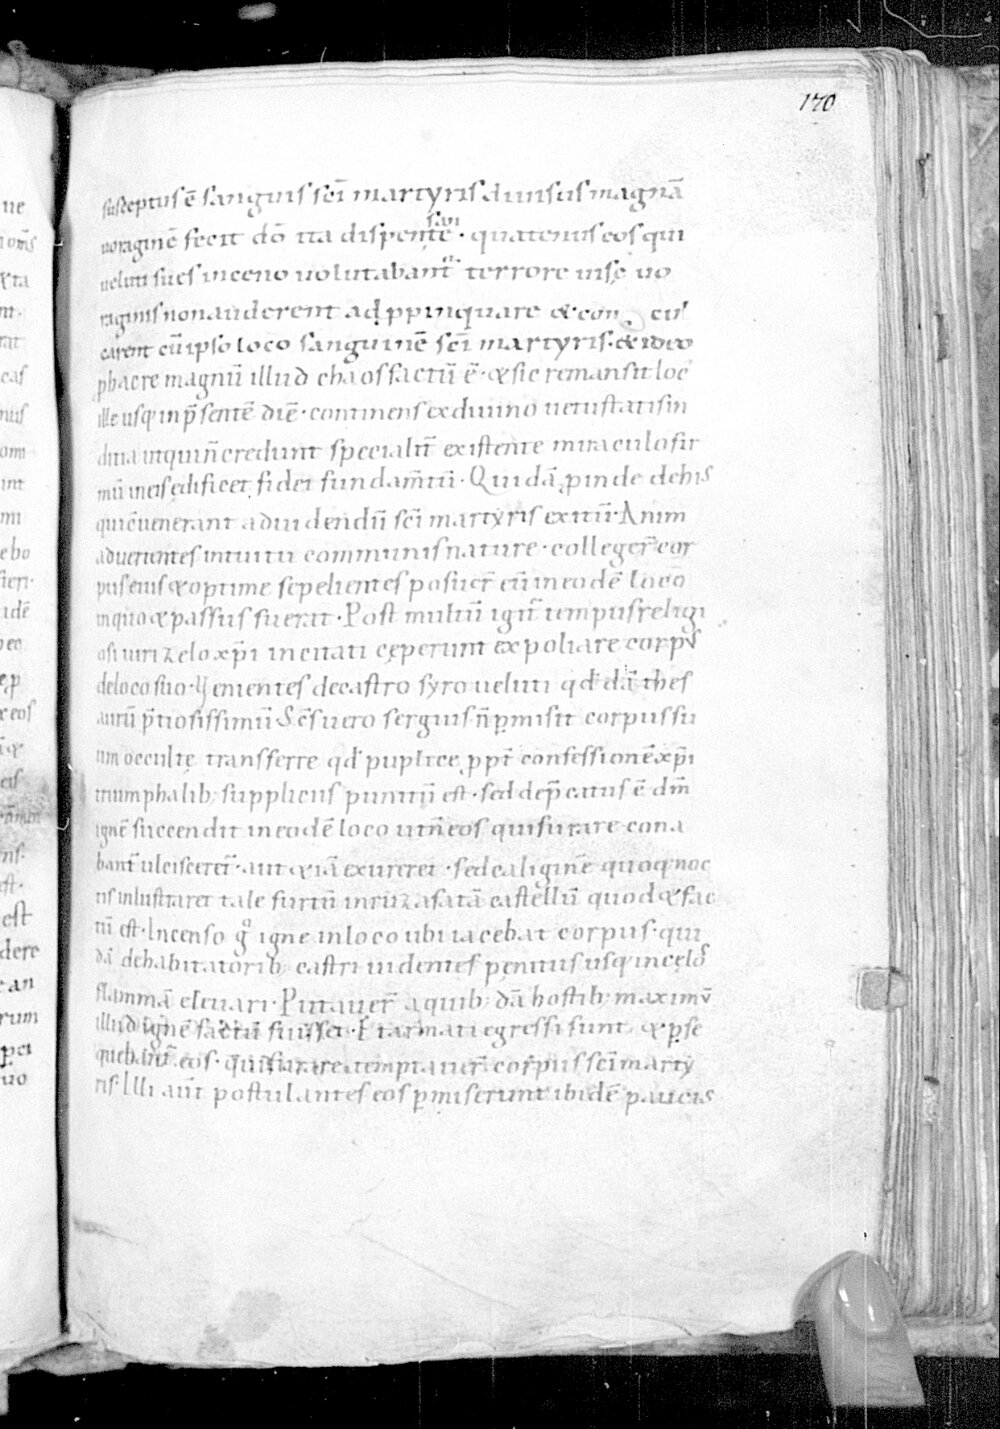 170
susceptus ē sanguis sc̄i martyris diuisus magnā
uoraginē fecit dō ita dispensante · quatenus eos qui
ueluti sues in ceno uolutabant̄ terrore uisę uo
raginis non auderent adppinquare & con cul
carent cū ipso loco sanguinē sc̄i martyris · & ideo
phacre magnū illud chaos factū ē · & sic remansit loc
ille usq in p̄sentē diē · continens ex diuino uetustatis in
ditia in quin̄ credunt specialit̄ existente miraculo fir
mū in eis edificet fidei fundam̄tū · Quidā pinde de his
qui cuenerant ad uidendū sc̄i martyris exitū · Anim
aduertentes intuitu communis nature · colleger̄ cor
pus eius & optime sepelientes posuer̄ cū in eodē loco
in quo & passus fuerat · Post multū igit̄ tempus religi
osi uiri zelo xp̄i incitati cęperunt expoliare corpꝰ
de loco suo · Uenientes de castro syro ueluti qd dā thes
aurū p̄tiosissimū · Sc̄s uero sergius n̄ pmisit corpus su
um occulte transferre qd puplice ppt̄ confessionē xp̄i
triumphalib; suppliciis punitū est · sed dep̄catus ē dm̄
ignē succendit in eodē loco ut n̄ eos qui furare cona
bant̄ ulcisceret̄ · aut & iā exureret · sed caliginē quoq noc
tis inlustraret tale furtū in ruzafatā castellū quod & fac
tū est · Incenso g igne in loco ubi iacebat corpus · qui
dā de habitatorib; castri uidentes penitus usq in celo
flammā eleuari · Putauer̄ a quib; dā hostib; maximū
illud ignē factū fuisse · Et armati egressi sunt & pse
quebant̄ eos · qui furare temptauer̄ corpus sc̄i marty
ris · Illi aut̄ postulantes eos pmiserunt ibidē paucis